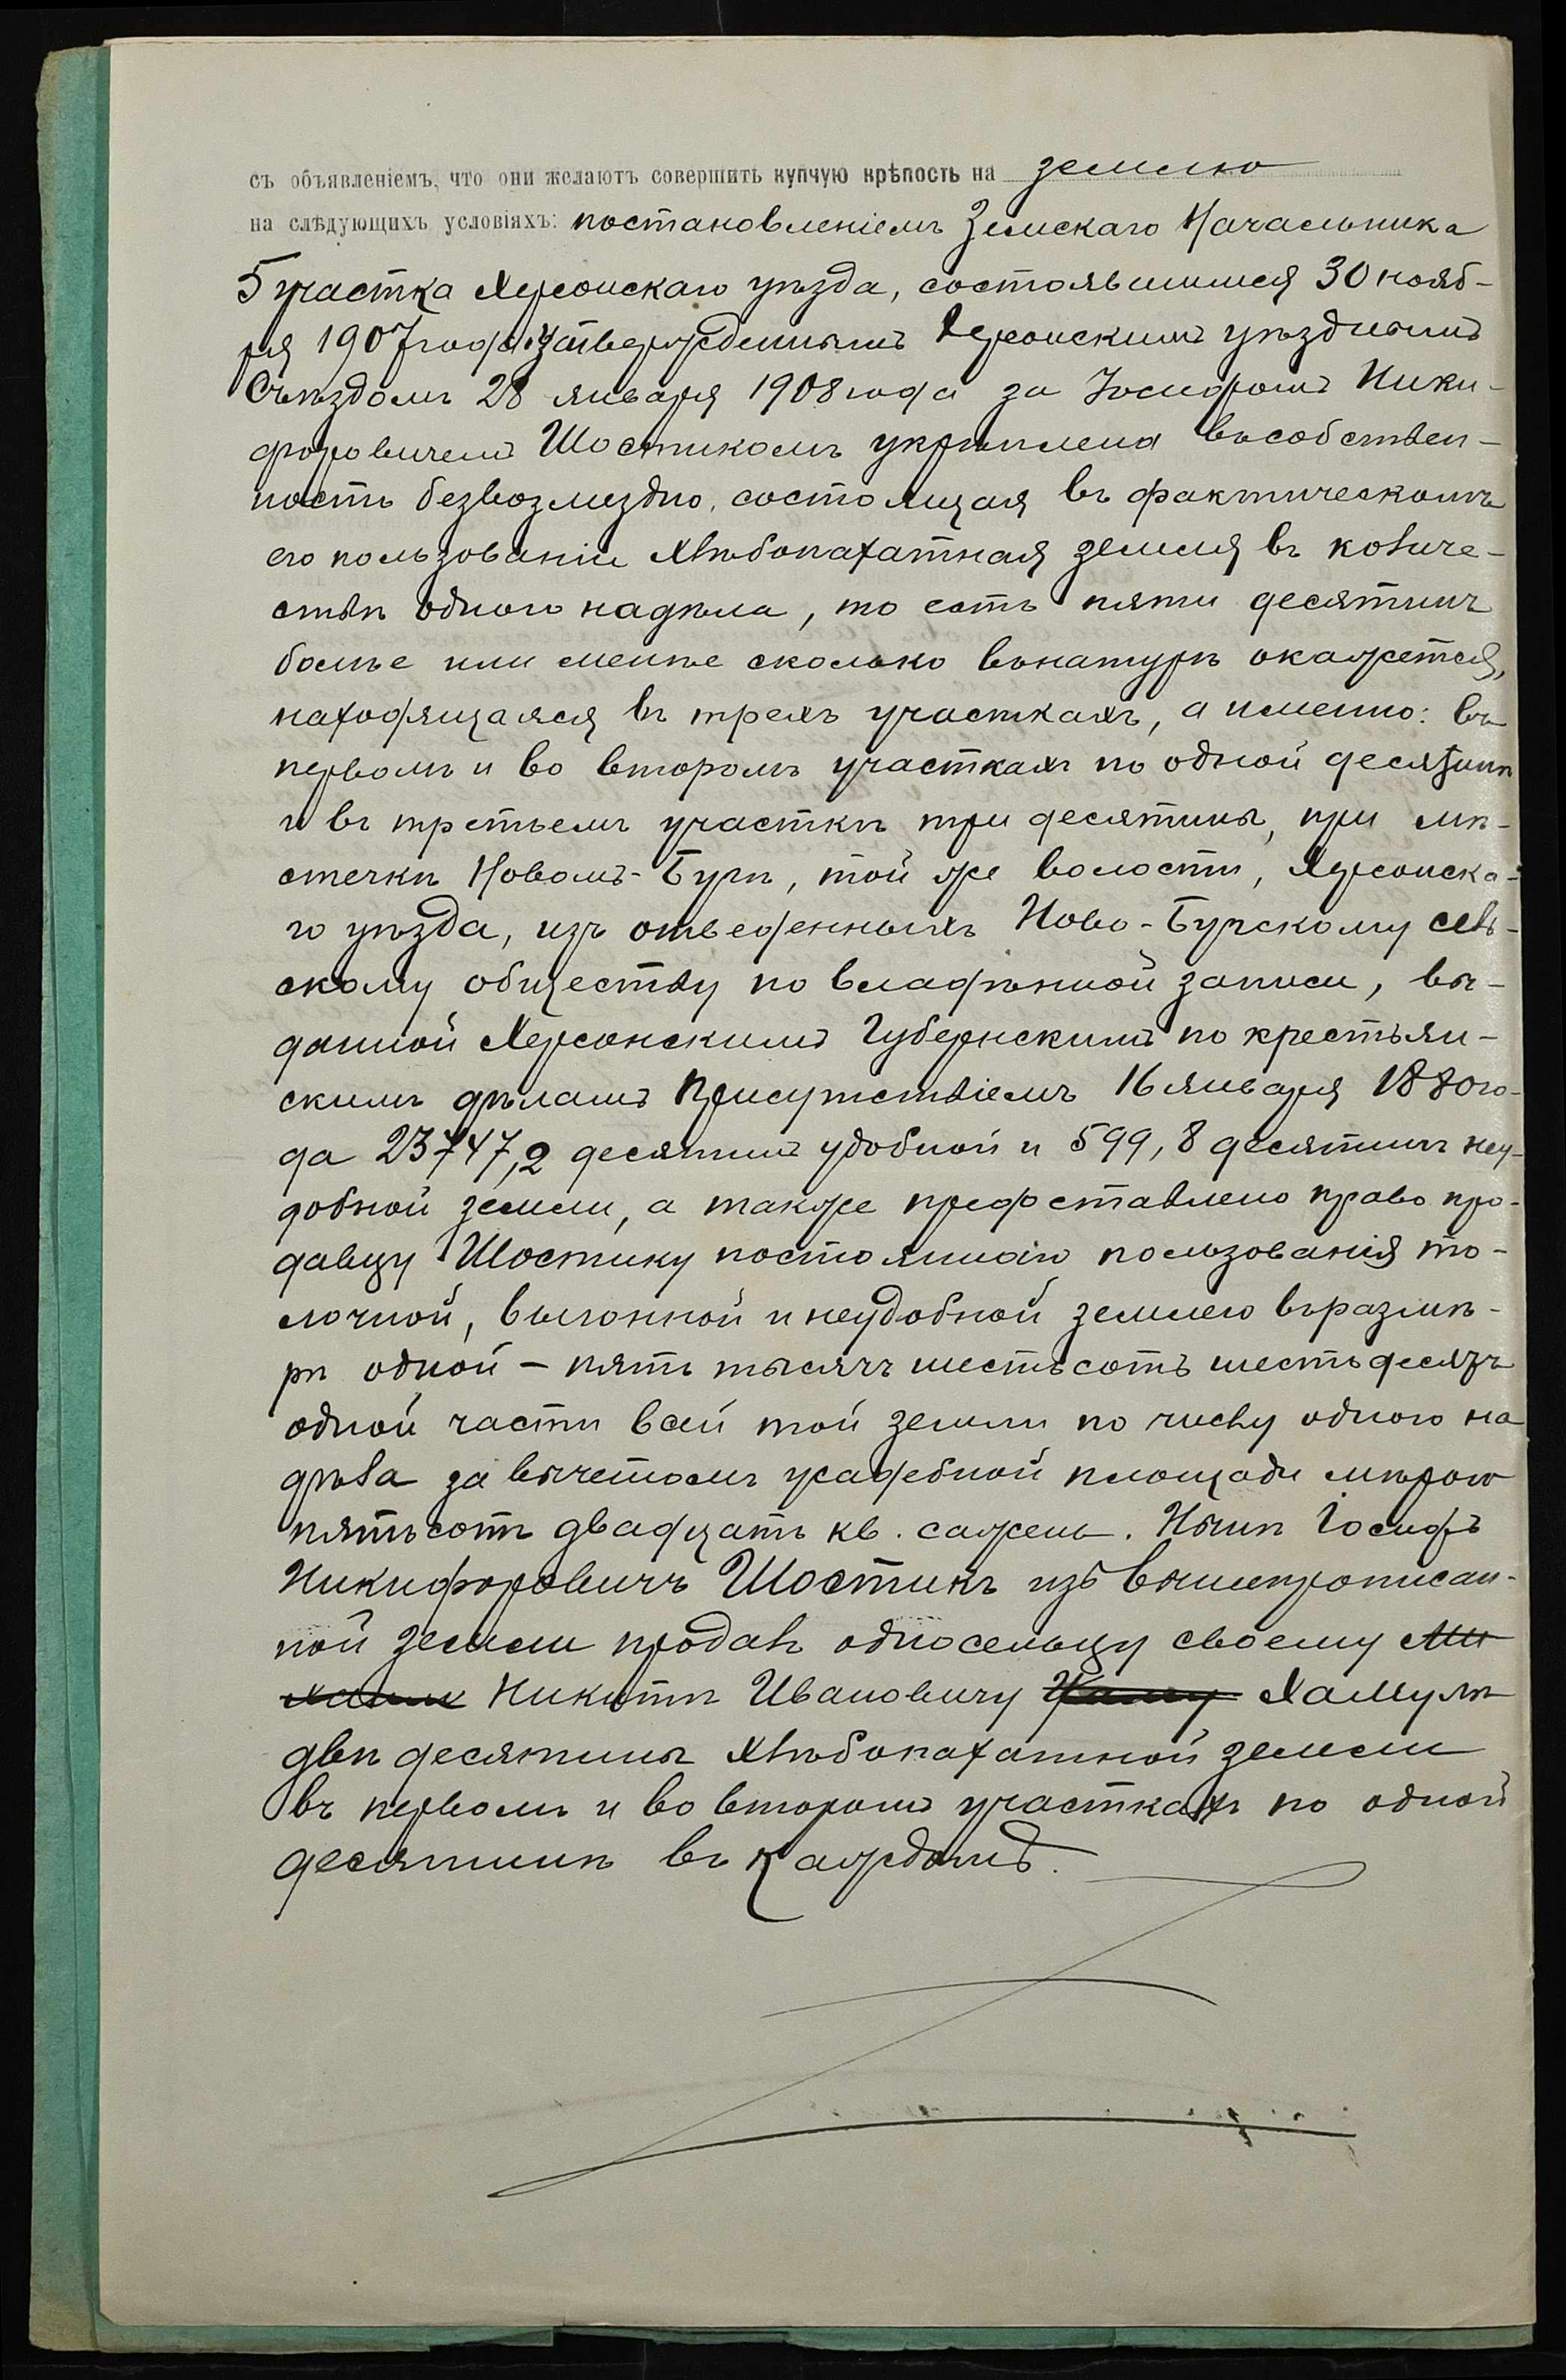 съ объявленіемъ, что они желаютъ совершить купчую крѣпость на землю
на слѣдующихъ условіяхъ: постановленіемъ Земскаго Начальника
5 участка Херсонскаго уѣзда, состоявшимся 30 нояб-
ря 1907 года утвержденнымъ Херсонскимъ уѣзднымъ
Съѣздомъ 28 января 1908 года за Іосифомъ Ники-
форовичемъ Шостикомъ укрѣплена въ собствен-
ность безвозмездно, состоящая въ фактическомъ
его пользованіи хлѣбопахатная земля въ количе-
ствѣ одного надѣла, то есть пяти десятинъ
болѣе или менѣе сколько въ натурѣ окажется,
находящаяся въ трехъ участкахъ, а именно: въ
первомъ и во второмъ участкахъ по одной десятинѣ
и въ третьемъ участкѣ три десятины, при мѣ-
стечкѣ Новомъ-Бугѣ, той же волости, Херсонска-
го уѣзда, изъ отведенныхъ Ново-Бугскому сель-
скому обществу по владѣнной записи, вы-
данной Херсонскимъ Губернскимъ по крестьян-
скимъ дѣламъ Присутствіемъ 16 января 1880 го-
да 23747,2 десятинъ удобной и 599,8 десятинъ неу-
добной земли, а также предоставлено право про-
давцу Шостику постояннаго пользованія то-
лочной, выгонной и неудобной землею въ размѣ-
рѣ одной - пять тысячъ шестьсотъ шестьдесятъ
одной части всей той земли по числу одного на
дѣла за вычетомъ усадебной площади мѣрою
пятьсотъ двадцать кв. сажень. Нынѣ Іосифъ
Никифоровичъ Шостикъ изъ вышепрописан-
ной земли продалъ односельцу своему Ми
хаилу Никитѣ Ивановичу Хаму Хамулѣ
двѣ десятины хлѣбопахатной земли
въ первомъ и во второмъ участкахъ по одной
десятинѣ въ каждомъ.